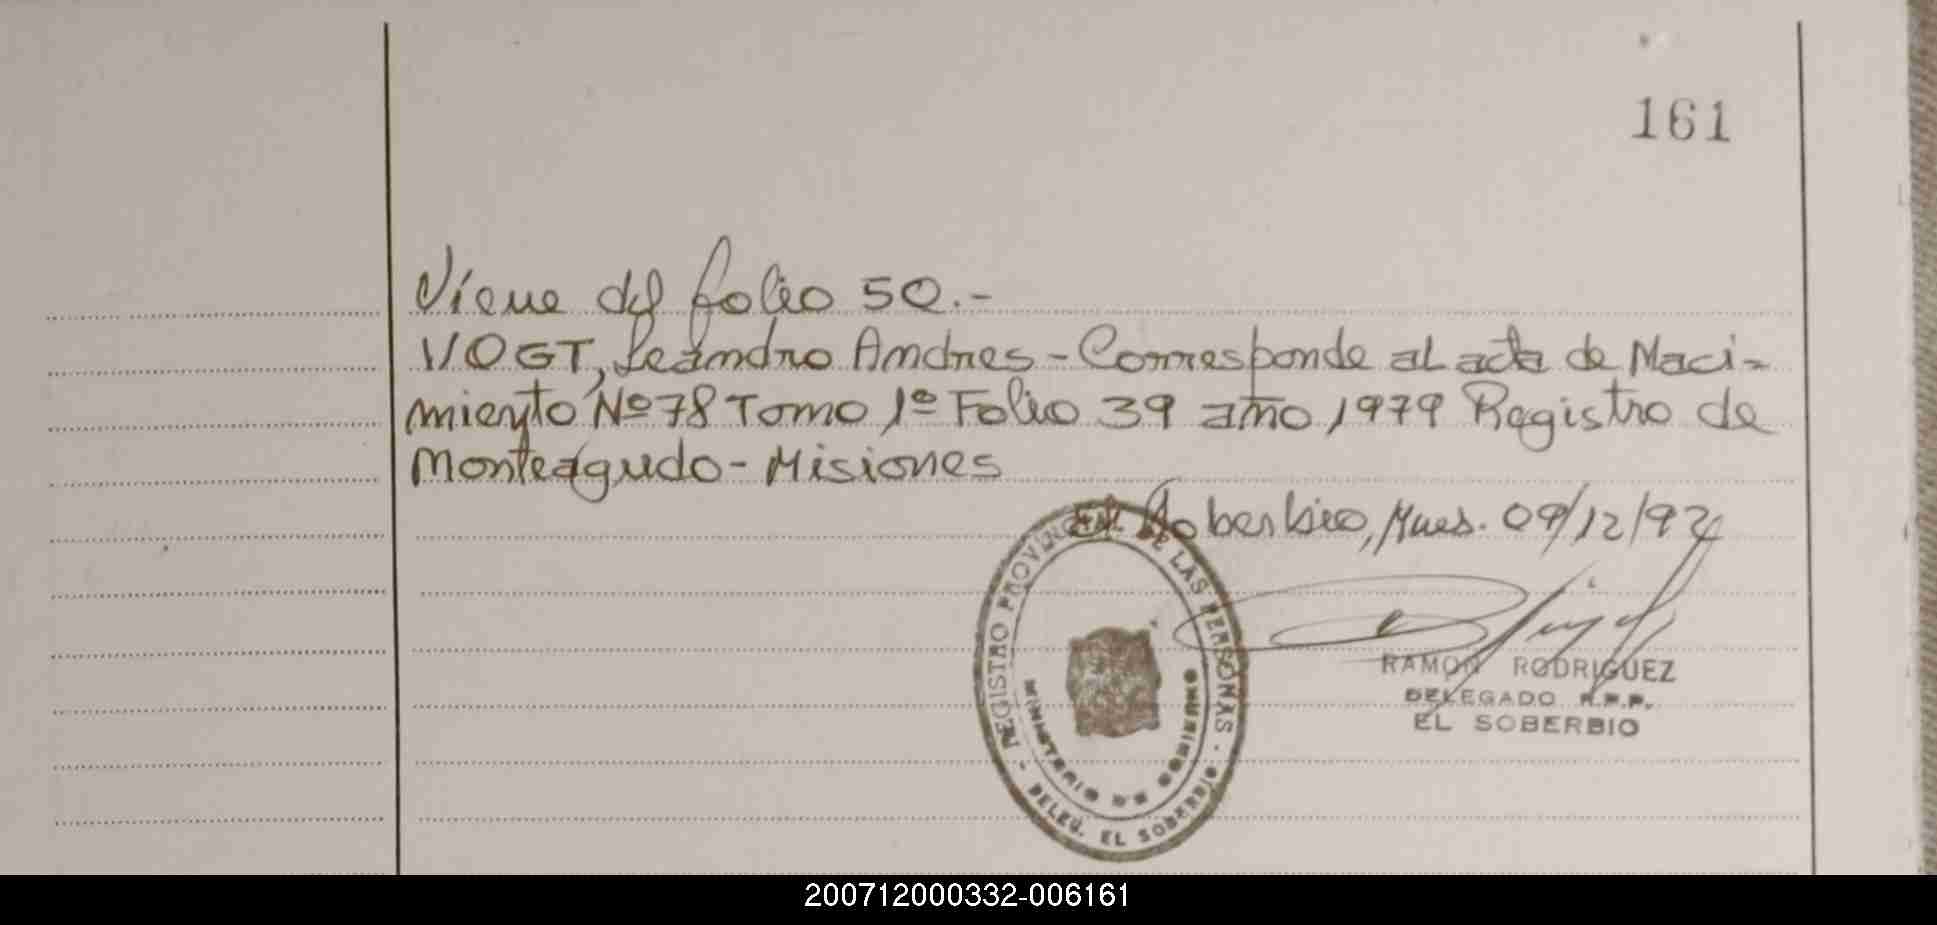 161
Viene del folio 50.-
VOGT, Leandro Andres - Corresponde al acta de Naci-
miento Nº 78 Tomo 1º Folio 39 año 1979 Registro de
Monteagudo - Misiones
El Soberbio, Mnes. 09/12/92
REGISTRO PROVINCIAL DE LAS PERSONAS - DELEG. EL SOBERBIO -
MINISTERIO DE GOBIERNO
RAMON RODRIGUEZ
DELEGADO R.P.P.
EL SOBERBIO
200712000332-006161